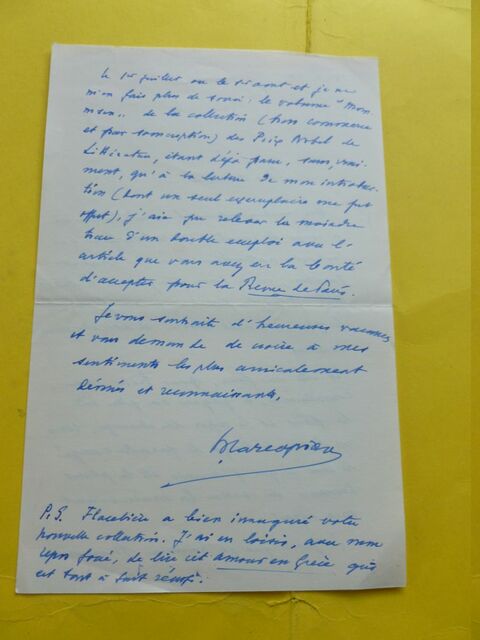 le 1er juillet ou le 1er août et je ne
m'en fais plus de souci: le volume "Mom
msen" de la collection (hors commerce
et par souscription) des Prix Nobel de
Littérature, étant déjà paru, sans, vrai-
ment, qu'à la lecture de mon introduc-
tion (dont un seul exemplaire me fut
offert), j'aie pu relever la moindre
trace d'un double emploi avec l'
article que vous avez eu la bonté
d'accepter pour la Revue de Paris.
Je vous souhaite d'heureuses vacances
et vous demande de croire à mes
sentiments les plus amicalement
dévoués et reconnaissants.
P.S. Flacelière a bien inauguré votre
nouvelle collection. J'ai eu loisir, avec mon
repos forcé, de lire cet amour en Grèce qui
est tout à fait réussi.